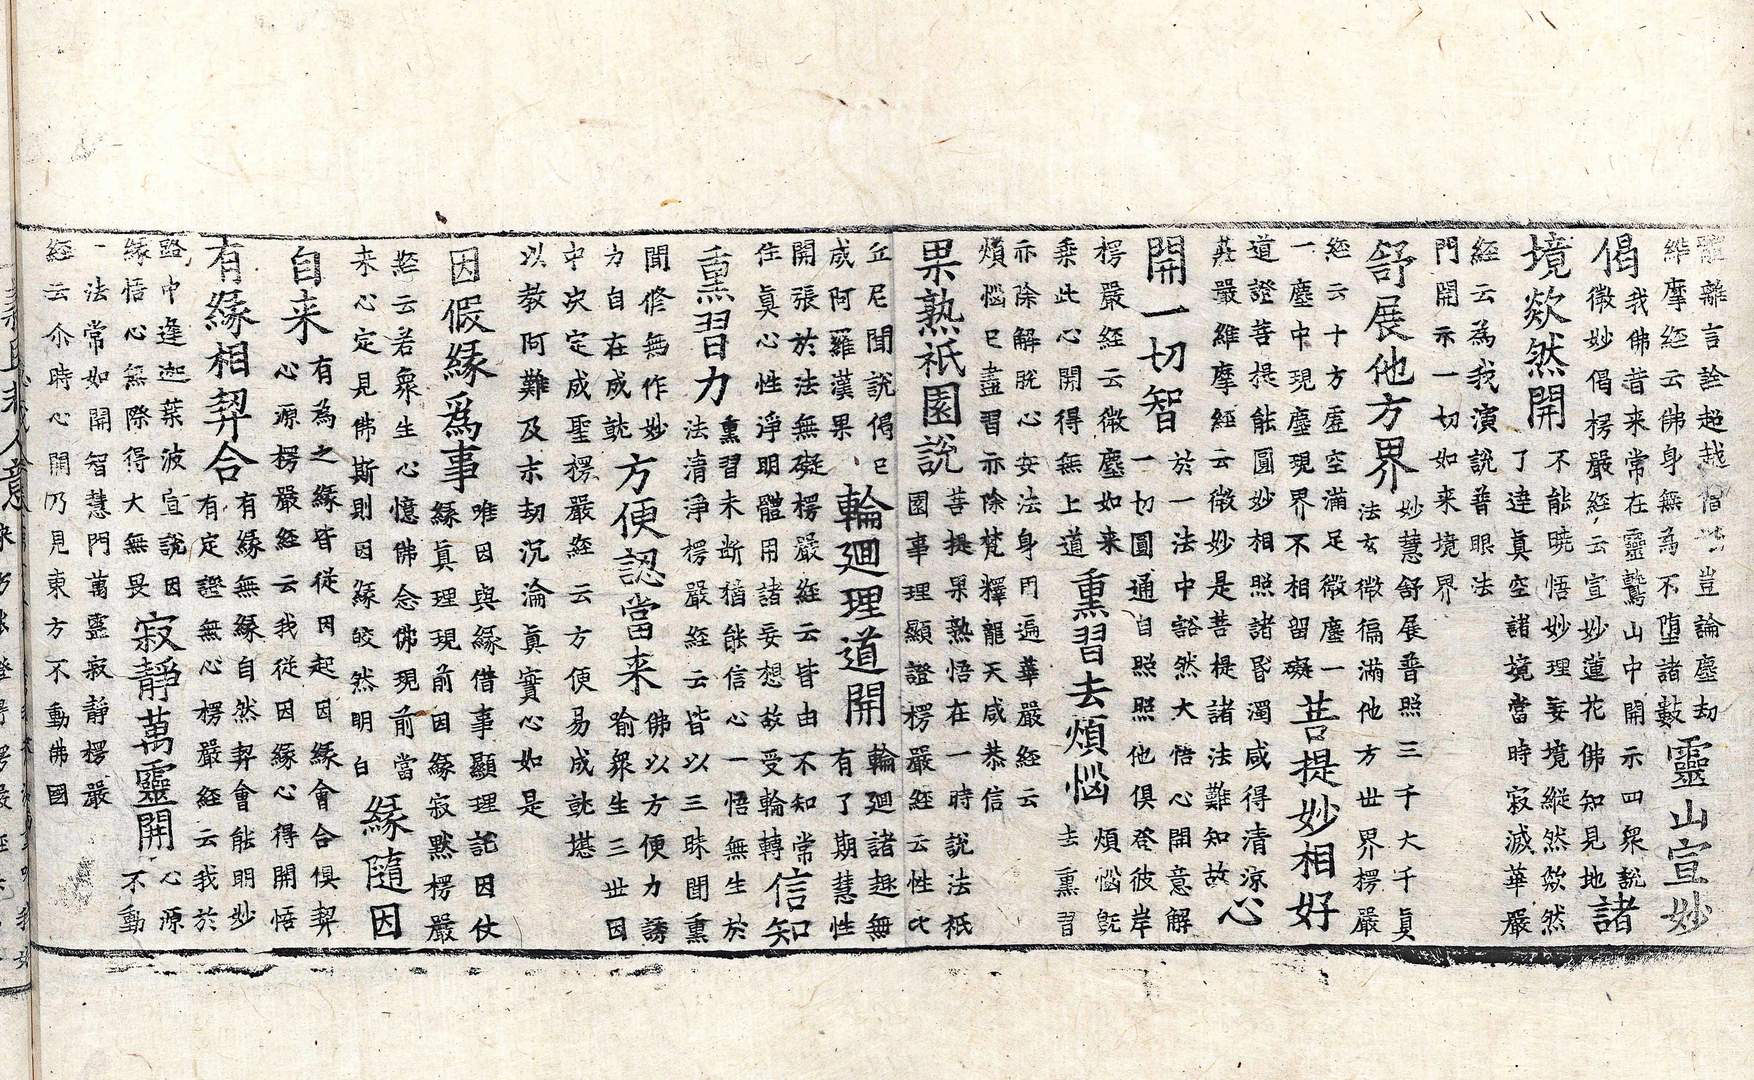 體離言詮超越僧祇豈論塵劫
維摩經云佛身無為不墮諸數
靈山宣妙
偈
我佛昔来常在靈鷲山中開示四衆說
微妙偈楞嚴經云宣妙蓮花佛知見地
諸
境欻然開
不能曉悟妙理妄境縱然欻然
了達真空諸境當時寂滅華嚴
經云為我演說普眼法
門開示一切如来境界
舒展他方界
妙慧舒展普照三千大千真
法玄微徧滿他方世界楞嚴
經云十方虛空滿足微塵一
一塵中現塵現界不相留礙
菩提妙相好
道證菩提能圓妙相照諸昏濁咸得清涼
莊嚴維摩經云微妙是菩提諸法難知故
心
開一切智
於一法中豁然大悟心開意解
一切圓通自照照他俱登彼岸
楞嚴經云微塵如来
乘此心開得無上道
熏習去煩惱
煩惱旣
去熏習
亦除解脫心安法身門遍華嚴經云
煩惱已盡習亦除梵釋龍天咸恭信
果熟祇園說
菩提果熟悟在一時說法祇
園事理顯證楞嚴經云性比
丘尼聞說偈已
成阿羅漢果
輪廻理道開
輪廻諸趣無
有了期慧性
開張於法無礙楞嚴經云皆由不知常
住真心性淨明體用諸妄想故受輪轉
信知
熏習力
熏習未断猶能信心一悟無生於
法清淨楞嚴經云皆以三昧聞熏
聞修無作妙
力自在成就
方便認當来
佛以方便力誘
喻衆生三世因
中決定成聖楞嚴經云方便易成就堪
以教阿難及末劫沉淪真實心如是
因假緣爲事
唯因與緣借事顯理託因仗
緣真理現前因緣寂默楞嚴
經云若衆生心憶佛念佛現前當
来心定見佛斯則因緣皎然明白
緣隨因
自来
有為之緣皆從因起因緣會合俱契
心源楞嚴經云我從因緣心得開悟
有緣相契合
有緣無緣自然契會能明妙
有定證無心楞嚴經云我於
路中逢迦葉波宣說因
緣悟心無際得大無畏
寂靜萬靈開
心源
不動
一法常如開智慧門萬靈寂靜楞嚴
經云尒時心開乃見東方不動佛國